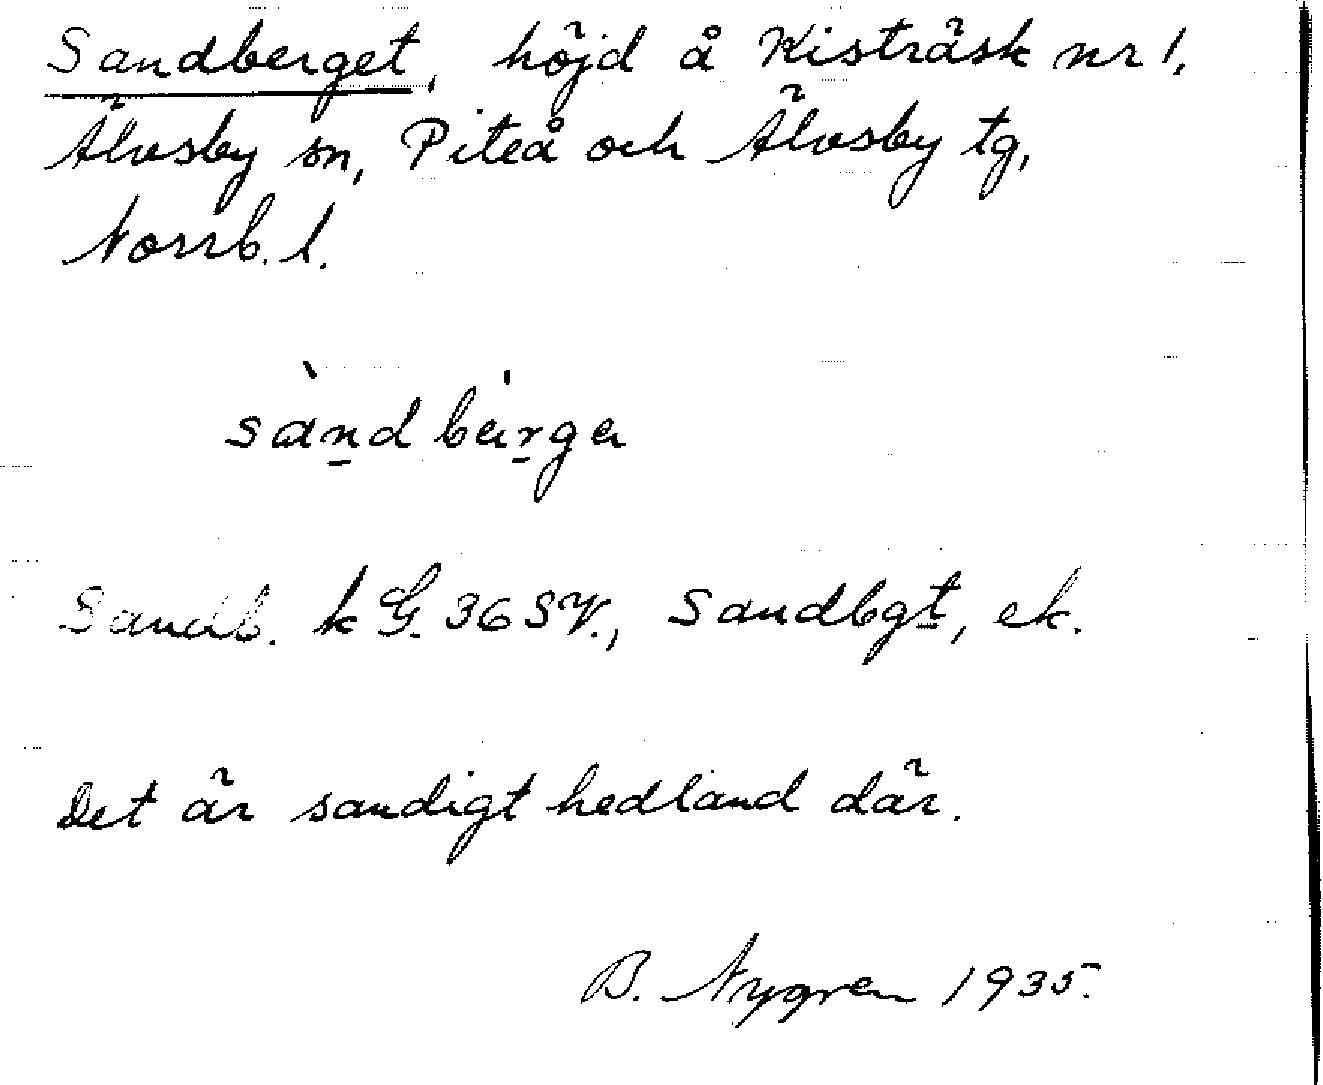 Sandberget, höjd å Kisträsk nr 1,
Älvsby sn, Piteå och Älvsby tg,
Norrb. l.
sàndbärga
Sandb. k G. 36 SV., Sandbgt, ek.
Det är sandigt hedland där.
B. Nygren 1935.